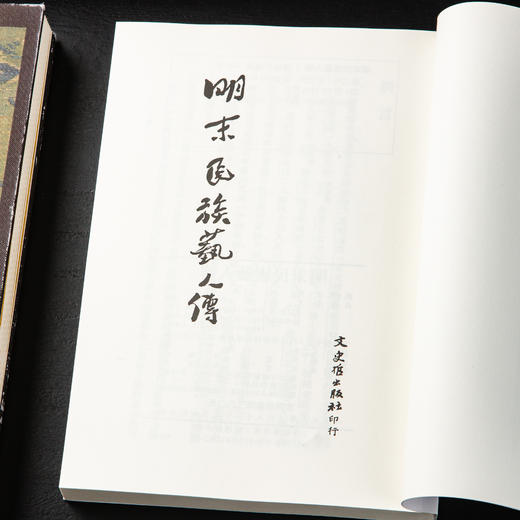 明末民族藝人傳
文史哲出版社印行